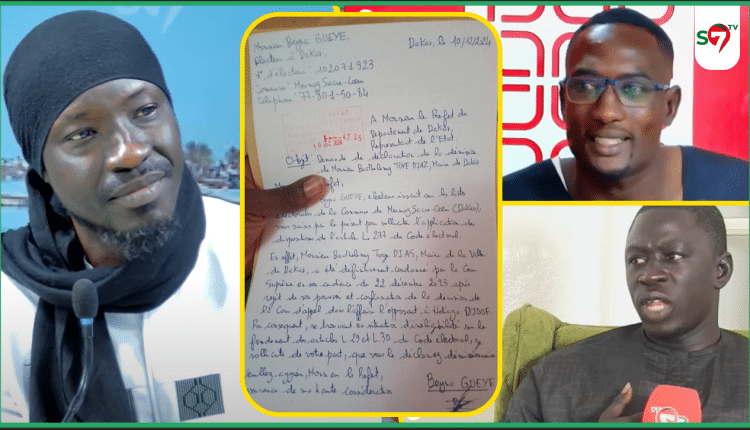 S7 TV
Monsieur Beyna GUEYE.
Electeur à Dakar.
N° d'électeur: 102071923
Commune: Mermoz Sacré-Coeur
Téléphone: 77-801-50-84
Dakar, le 10/12/2024
A Monsieur le Préfet du
département de Dakar,
Représentant de l'Etat
Objet: Demande de déclaration de la démission
de Monsieur Barthélemy TOYE DIAZ, Maire de Dakar
Préfet,
GUEYE, électeur inscrit sur la liste
électorale de la Commune de Mermoz Sacré-Coeur (Dakar),
par la présente pour solliciter l'application des
dispositions de l'article L.277 du Code électoral.
En effet, Monsieur Barthélemy Toye DIAS, Maire de la Ville
de Dakar, a été définitivement condamné par la Cour
Suprême en son audience du 22 décembre 2023 après
rejet de son pourvoi et confirmation de la décision de
la Cour d'appel dans l'affaire l'opposant à Ndiaga DIOUF.
Par conséquent, se trouvant en situation d'inéligibilité sur le
fondement des articles L 29 et L 30 du Code électoral, je
sollicite de votre part, que vous le déclariez démissionnaire
Veuillez agréer, Monsieur le Préfet,
de ma haute considération
Beyna GUEYE